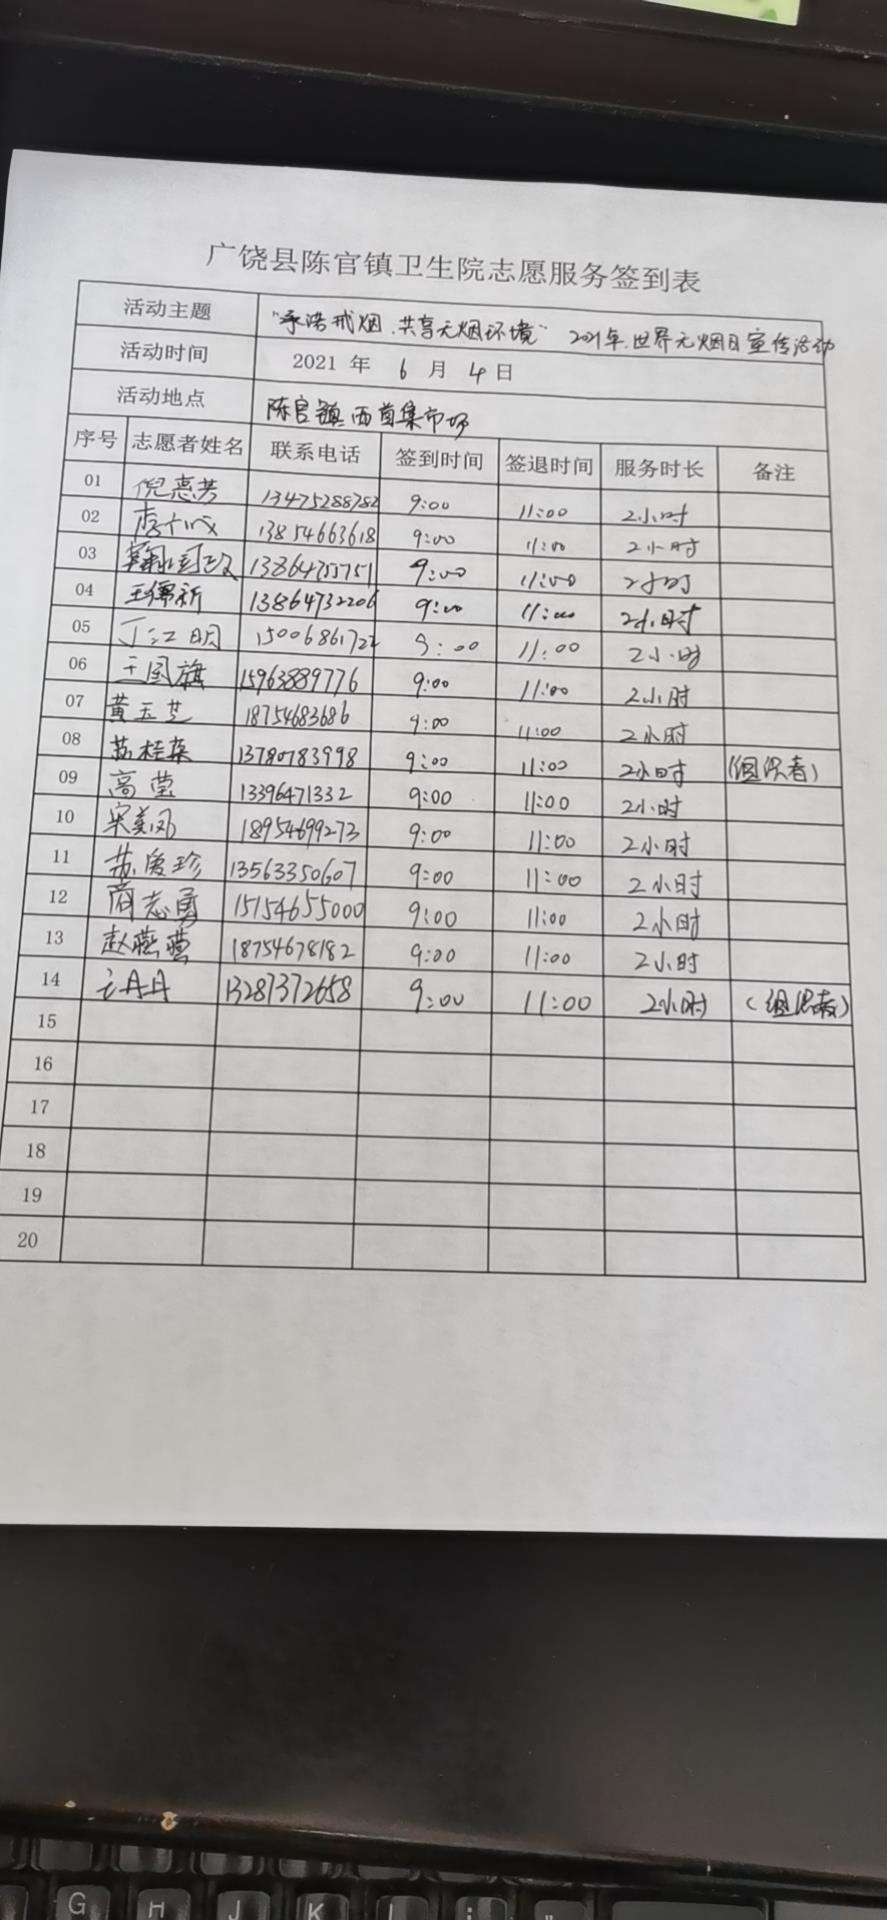 广饶县陈官镇卫生院志愿服务签到表
活动主题 "承诺戒烟.共享无烟环境" 2021年.世界无烟日宣传活动
活动时间 2021 年 6 月 4 日
活动地点 陈官镇西首集市场
序号 志愿者姓名 联系电话 签到时间 签退时间 服务时长 备注
01 倪惠芳 13475288782 9:00 11:00 2小时
02 13854663618 9:00 11:00 2小时
03 13864755751 9:00 11:00 2小时
04 13864732206 9:00 11:00 2小时
05 丁江明 15006861722 9:00 11:00 2小时
06 王国旗 15963889776 9:00 11:00 2小时
07 黄玉芝 18754683686 9:00 11:00 2小时
08 苏桂英 13780783998 9:00 11:00 2小时 (组织者)
09 高莹 13396471332 9:00 11:00 2小时
10 宋美凤 18954699273 9:00 11:00 2小时
11 苏爱珍 13563350607 9:00 11:00 2小时
12 商志勇 15154655000 9:00 11:00 2小时
13 赵燕 18754678182 9:00 11:00 2小时
14 丹丹 13287372658 9:00 11:00 2小时 (组织者)
15
16
17
18
19
20
G H J K L ; "